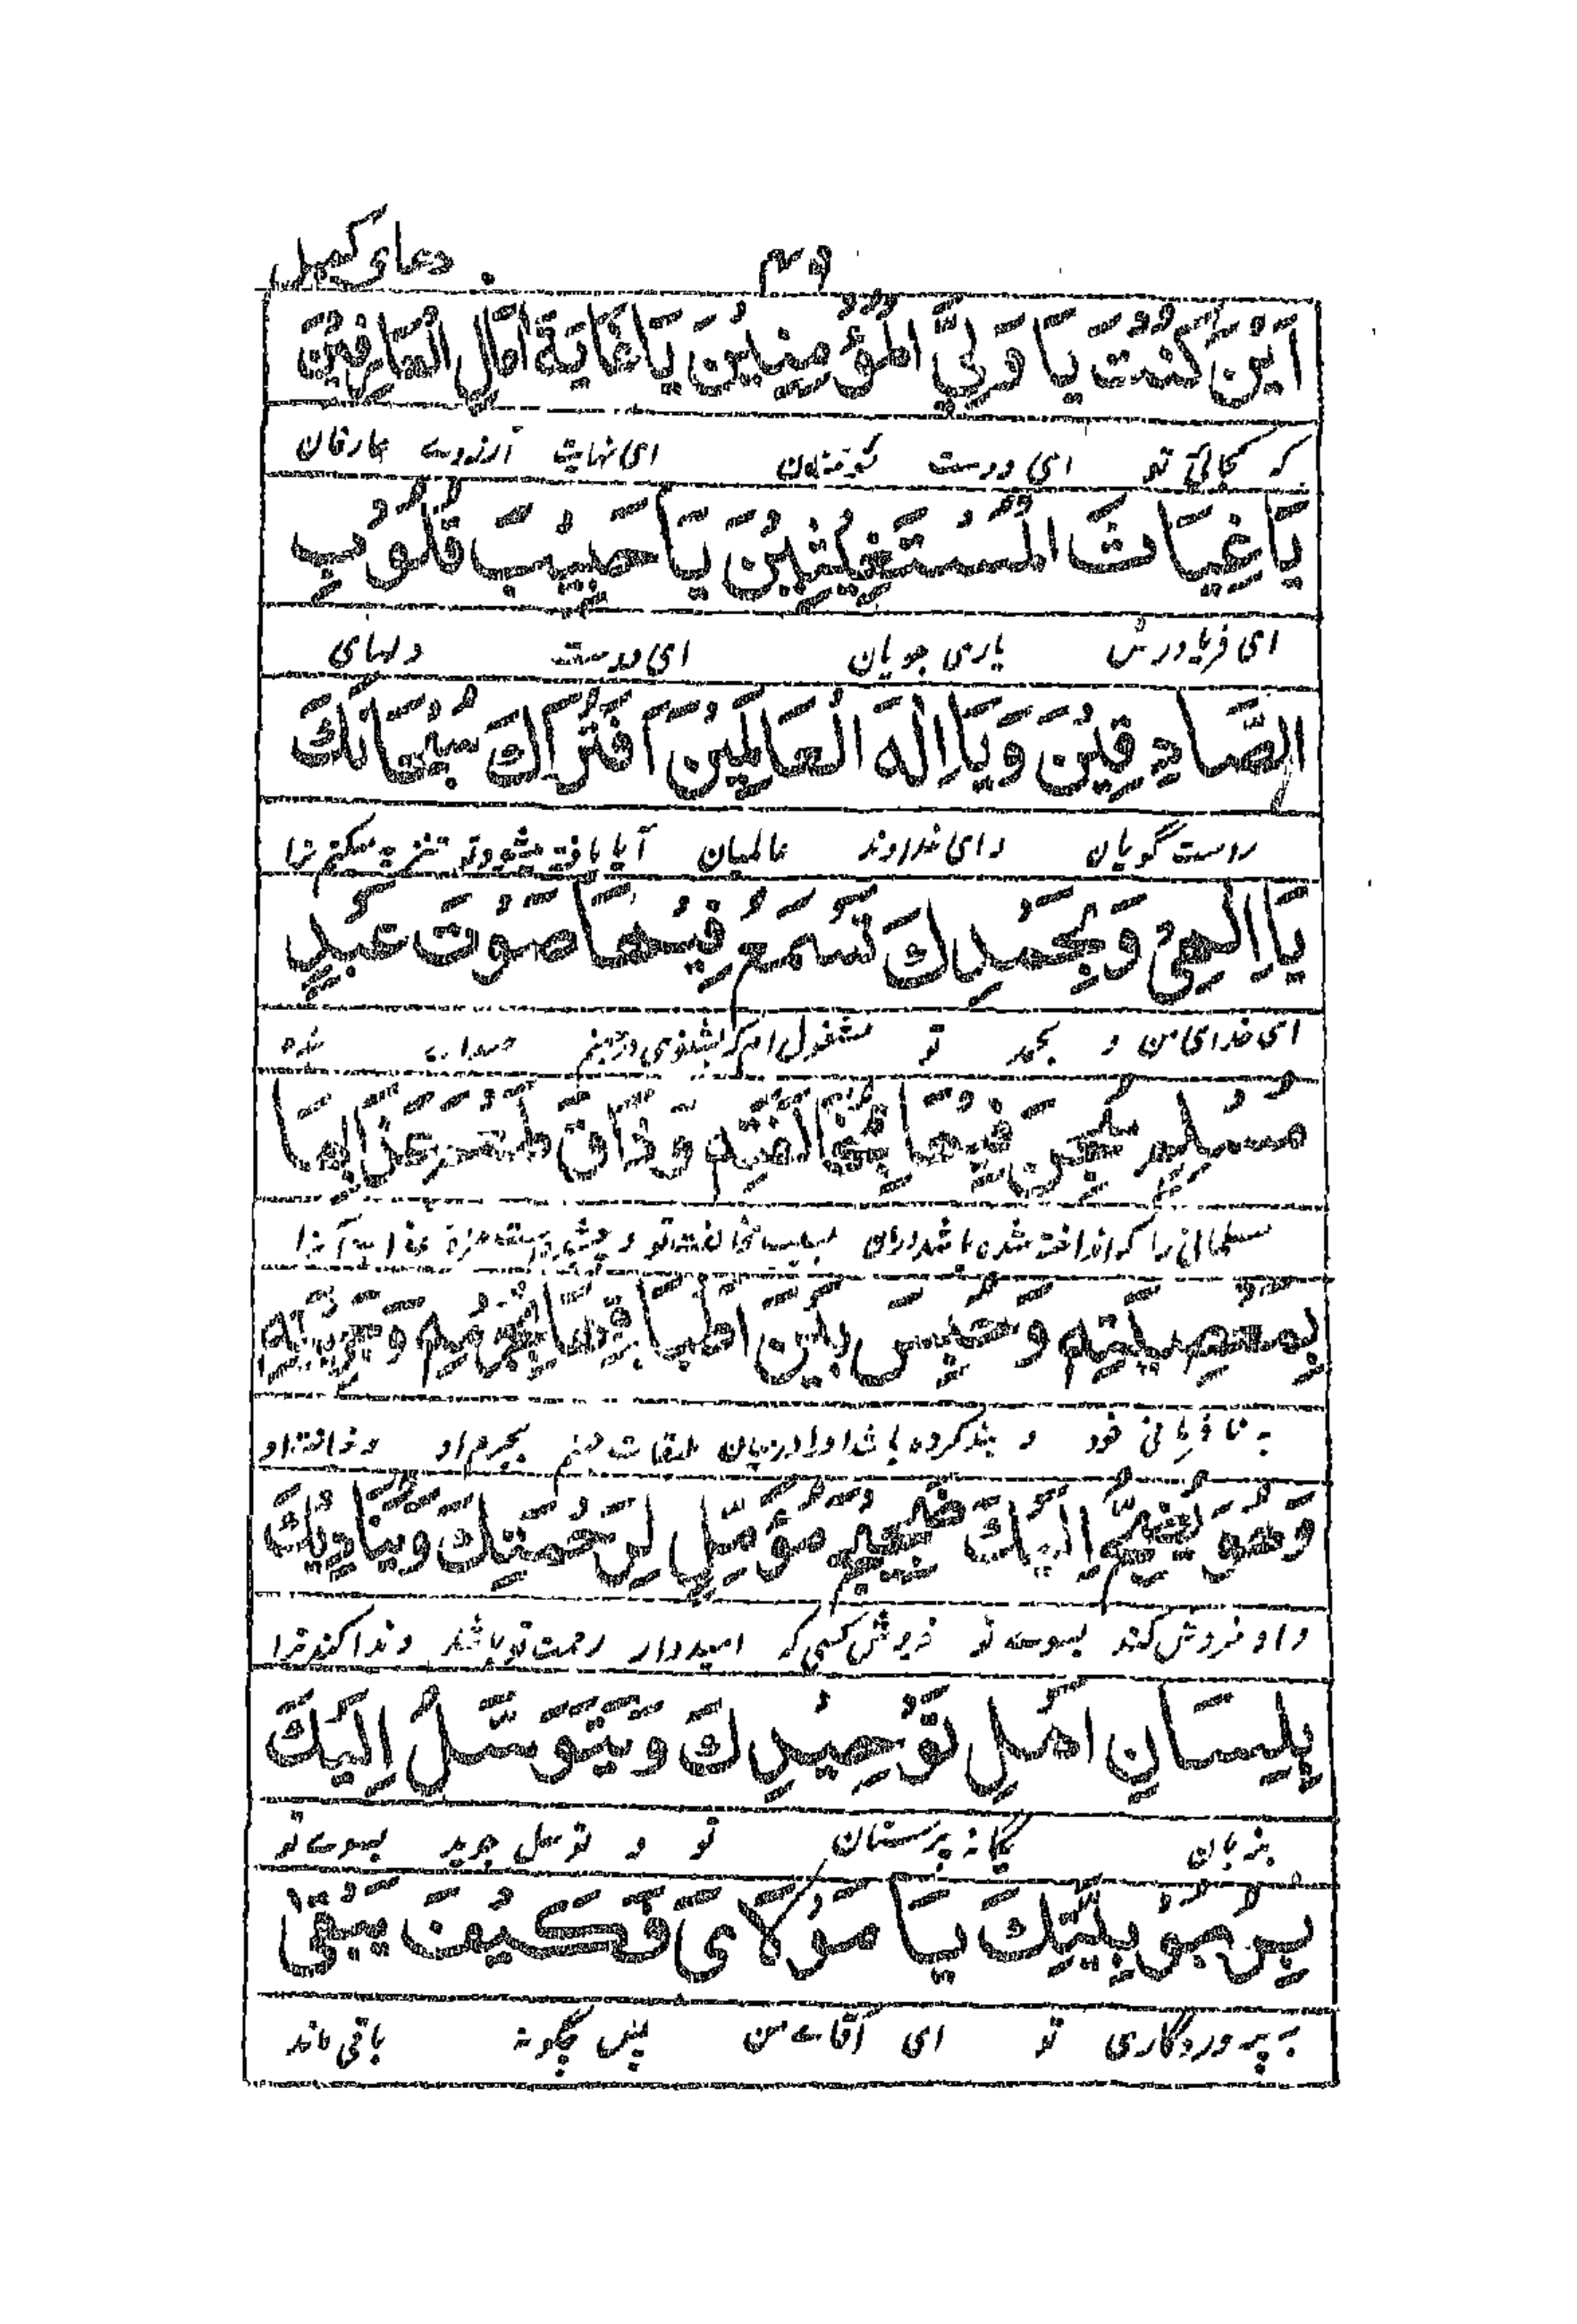 ۴۹ دعای کمیل
اَیْنَ کُنْتَ یَا وَلِیَّ الْمُؤْمِنِیْنَ یَا غَایَةَ اٰمَالِ الْعَارِفِیْنَ
که کجائی تو ای دوست مؤمنان ای نهایت آرزوے عارفان
یَا غِیَاثَ الْمُسْتَغِیْثِیْنَ یَا حَبِیْبَ قُلُوْبِ
ای فریادرس یاری جویان ای دوست دلهای
الصَّادِقِیْنَ وَیَا اِلٰهَ الْعَالَمِیْنَ اَفَتُرَاكَ سُبْحَانَكَ
راست گویان وای خداوند عالمیان آیا یافته میشود تو تنزیه میکنم ترا
یَا اِلٰهِیْ وَبِحَمْدِكَ تَسْمَعُ فِیْهَا صَوْتَ عَبْدٍ
ای خدای من و بحمد تو مشغول ام که بشنوی در جهنم صداے بنده
مُسْلِمٍ سُجِنَ فِیْهَا بِمُخَالَفَتِهٖ وَذَاقَ طَعْمَ عَذَابِهَا
مسلمانی را که انداخته شده باشد دران بسبب مخالفت تو و چشیده مزه عذاب آنرا
بِمَعْصِیَتِهٖ وَحُبِسَ بَیْنَ اَطْبَاقِهَا بِجُرْمِهٖ وَجَرِیْرَتِهٖ
به نافرمانی خود و بند کرده باشد اورا درمیان طبقات جهنم بجرم او
وَهُوَ یَضِجُّ اِلَیْكَ ضَجِیْجَ مُؤَمِّلٍ لِرَحْمَتِكَ وَیُنَادِیْكَ
و او خروش کند بسوے تو خروش کسی که امیدوار رحمت تو باشد و ندا کند ترا
بِلِسَانِ اَهْلِ تَوْحِیْدِكَ وَیَتَوَسَّلُ اِلَیْكَ
بزبان یگانه پرستان تو و توسل جوید بسوے تو
بِرُبُوْبِیَّتِكَ یَا مَوْلَایَ فَکَیْفَ یَبْقٰی
به پروردگاری تو ای آقاے من پس چگونه باقی ماند